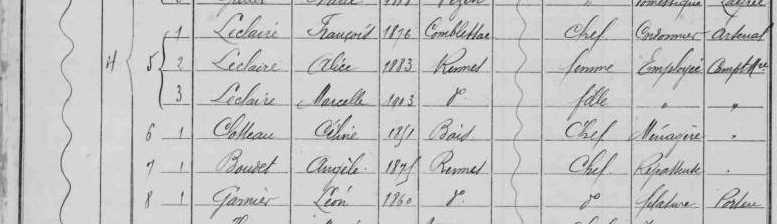 1 Leclaire François 1876 Comblessac Chef Cordonnier Arsenal
4 5 2 Leclaire Alice 1883 Rennes femme Employée
3 Leclaire Marcelle 1903 do fille " "
6 1 Céline 1851 Bais Chef Ménagère "
7 1 Boudet Angèle 1875 Rennes Chef Repasseuse
8 1 Garnier Léon 1860 do do filature